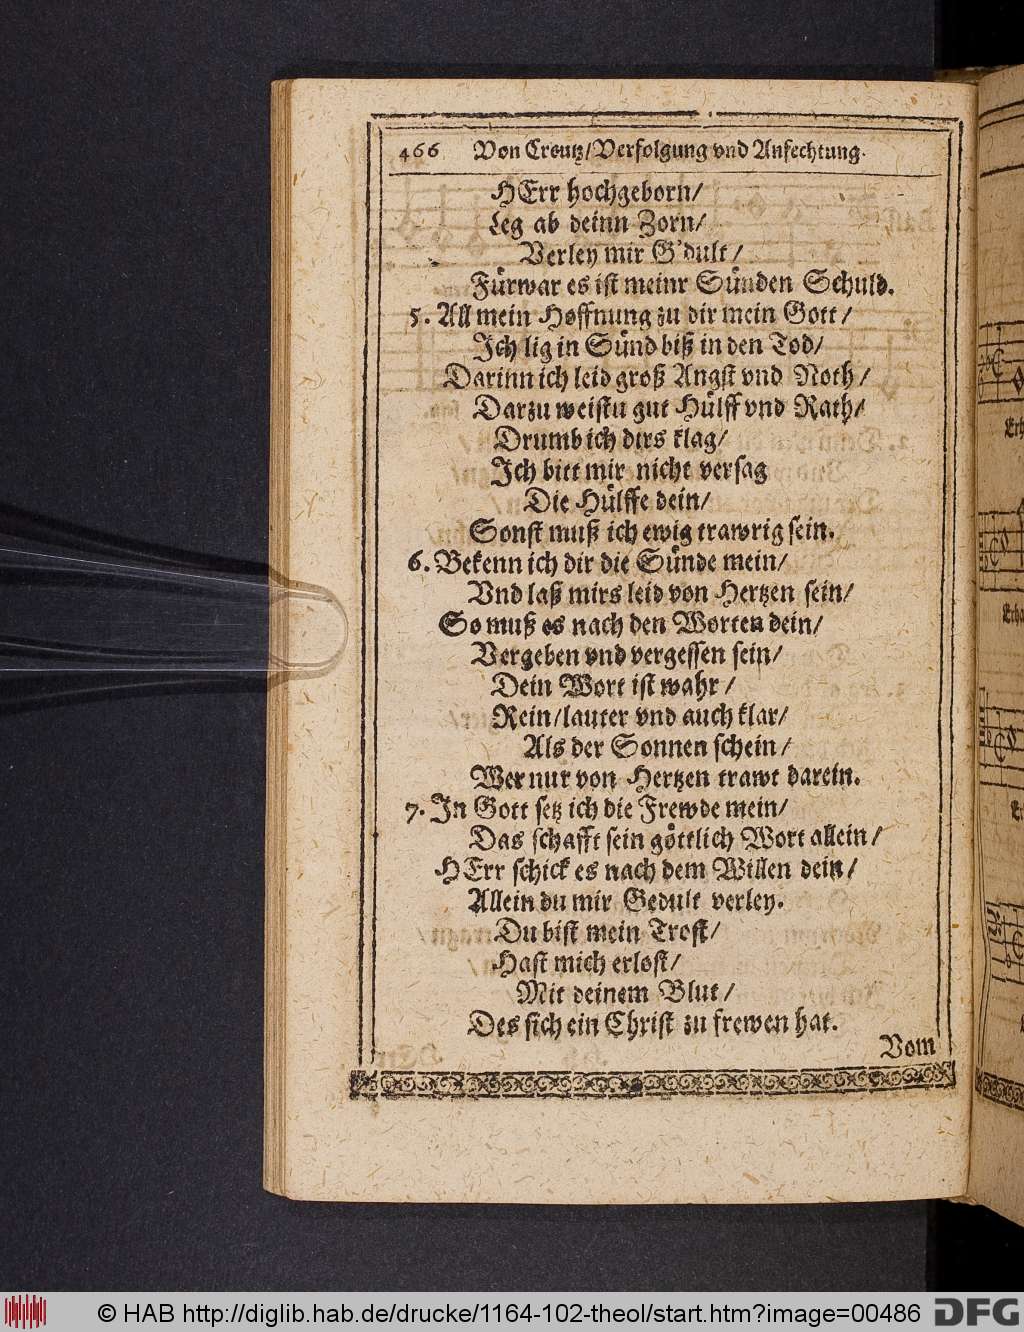 466 Von Creutz/Verfolgung vnd Anfechtung.
HErr hochgeborn/
Leg ab deinn Zorn/
Verley mir G'dult/
Fürwar es ist meinr Sünden Schuld.
5. All mein Hoffnung zu dir mein Gott/
Ich lig in Sünd biß in den Tod/
Darinn ich leid groß Angst vnd Noth/
Darzu weistu gut Hülff vnd Rath/
Drumb ich dirs klag/
Ich bitt mir nicht versag
Die Hülffe dein/
Sonst muß ich ewig trawrig sein.
6. Bekenn ich dir die Sünde mein/
Vnd laß mirs leid von Hertzen sein/
So muß es nach den Worten dein/
Vergeben vnd vergessen sein/
Dein Wort ist wahr/
Rein/lauter vnd auch klar/
Als der Sonnen schein/
Wer nur von Hertzen trawt darein.
7. In Gott setz ich die Frewde mein/
Das schafft sein göttlich Wort allein/
HErr schick es nach dem Willen dein/
Allein du mir Gedult verley.
Du bist mein Trost/
Hast mich erlost/
Mit deinem Blut/
Des sich ein Christ zu frewen hat.
Vom
© HAB http://diglib.hab.de/drucke/1164-102-theol/start.htm?image=00486
DFG